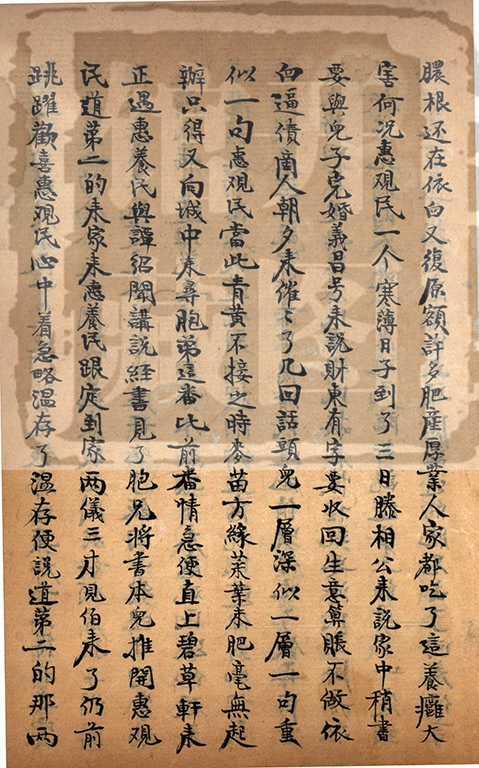 膿根还在依白又復原額許多肥產厚業人家都吃了這養癰大
害何况惠观民一个寒薄日子到了三日滕相公来說家中稍書
要與兒子完婚義昌号来說財東有字要收回生意算賬不做依
旧逼債啇人朝夕来催〻了几回話頭兒一層深似一層一句重
似一句惠观民當此青黄不接之時麥苗方緣菜葉未肥毫無起
辦只得又向城中来尋胞弟這番比前番情急便直上碧草軒来
正遇惠養民與譚紹聞講說經書見了胞兄將書本兒推開惠观
民道第二的来家来惠養民跟定到家两儀三才見伯来了仍前
跳躍歡喜惠观民心中着急略温存了温存便說道第二的那两